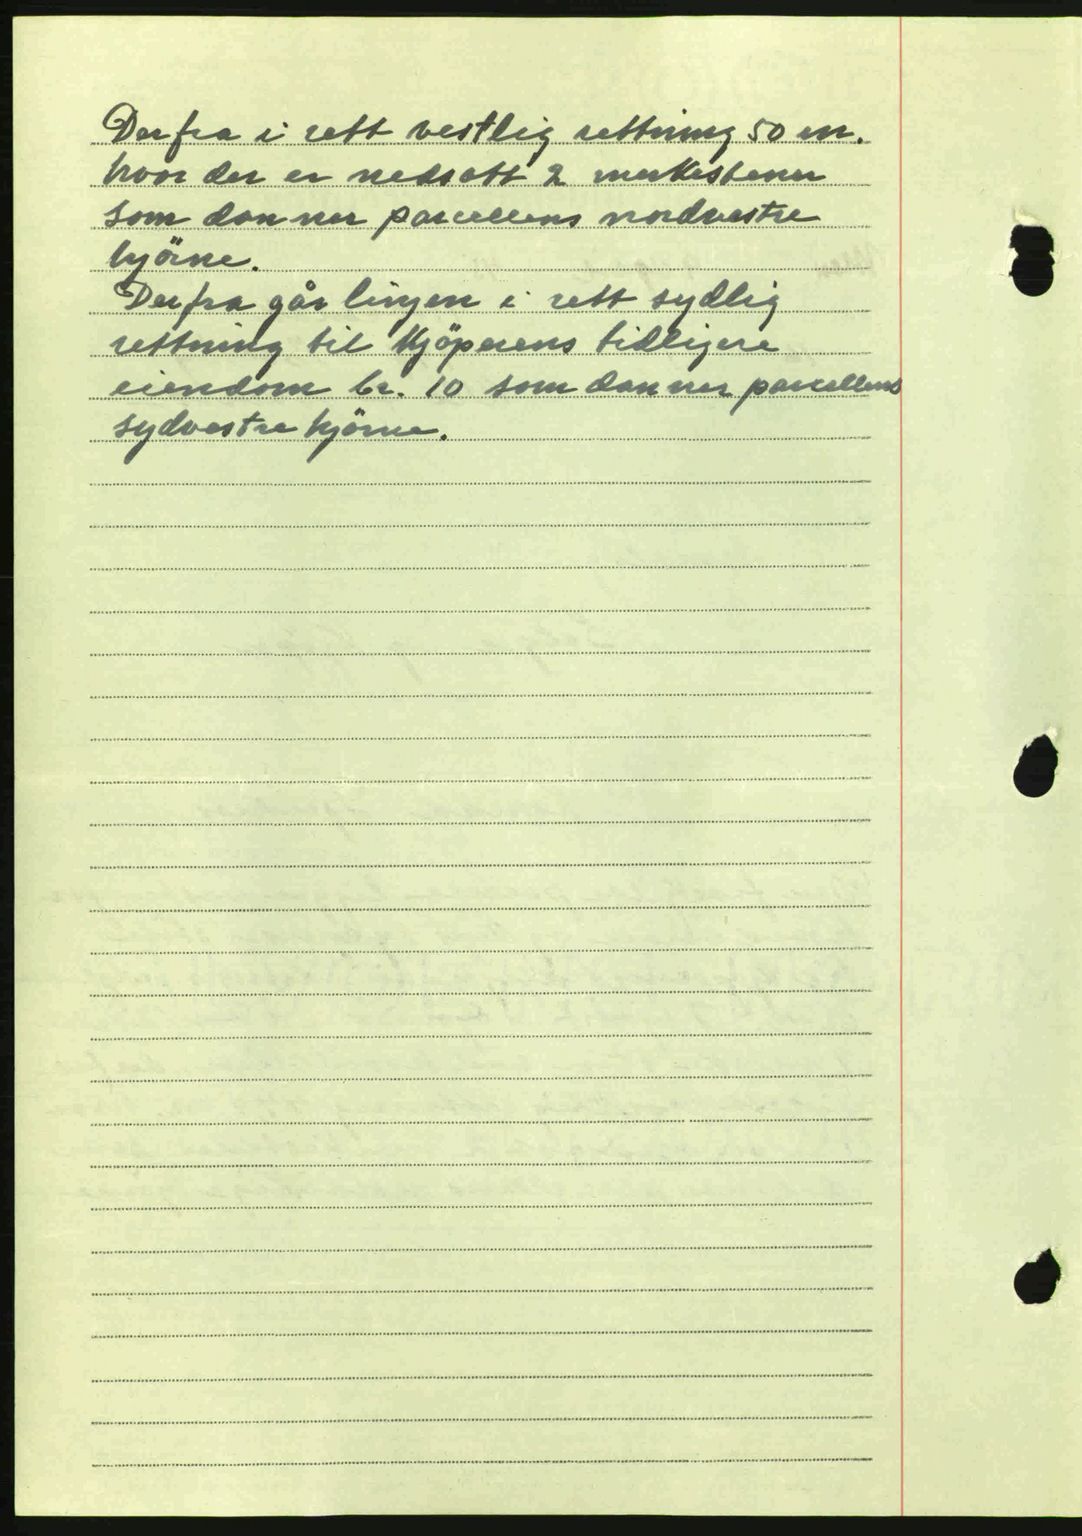 Derfra i rett vestlig rettning 50 m.
hvor der er nedsatt 2 merkestener
som danner parcellens nordvestre
hjörne.
Derfra går linjen i rett sydlig
rettning til Kjöperens tidligere
eiendom br. 10 som danner parcellens
sydvestre hjörne.